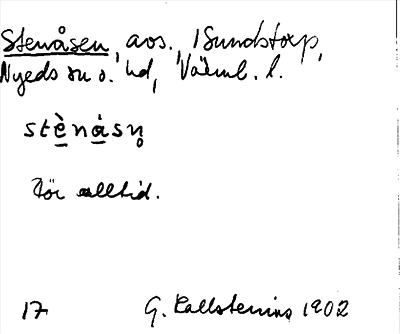 Stenåsen, avs., 1 Sundstorp,
Nyeds sn o. hd, Värml. l.
stè̠nå̠sn̥
För alltid.
17 G. Kallstenius 1902